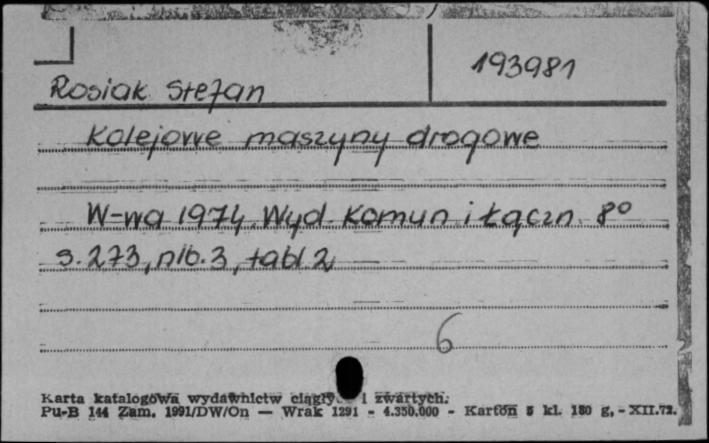 193981
Rosiak Stefan
Kolejowe maszyny drogowe
W-wa 1974. Wyd. Komun. i Łączn. 8º
s. 273, nlb. 3, tabl. 2
6
Karta katalogowa wydawnictw ciągły i zwartych.
Pu-B 144 Zam. 1991/DW/On — Wrak 1291 - 4.350.000 - Karton 5 kl. 180 g. - XII.72.